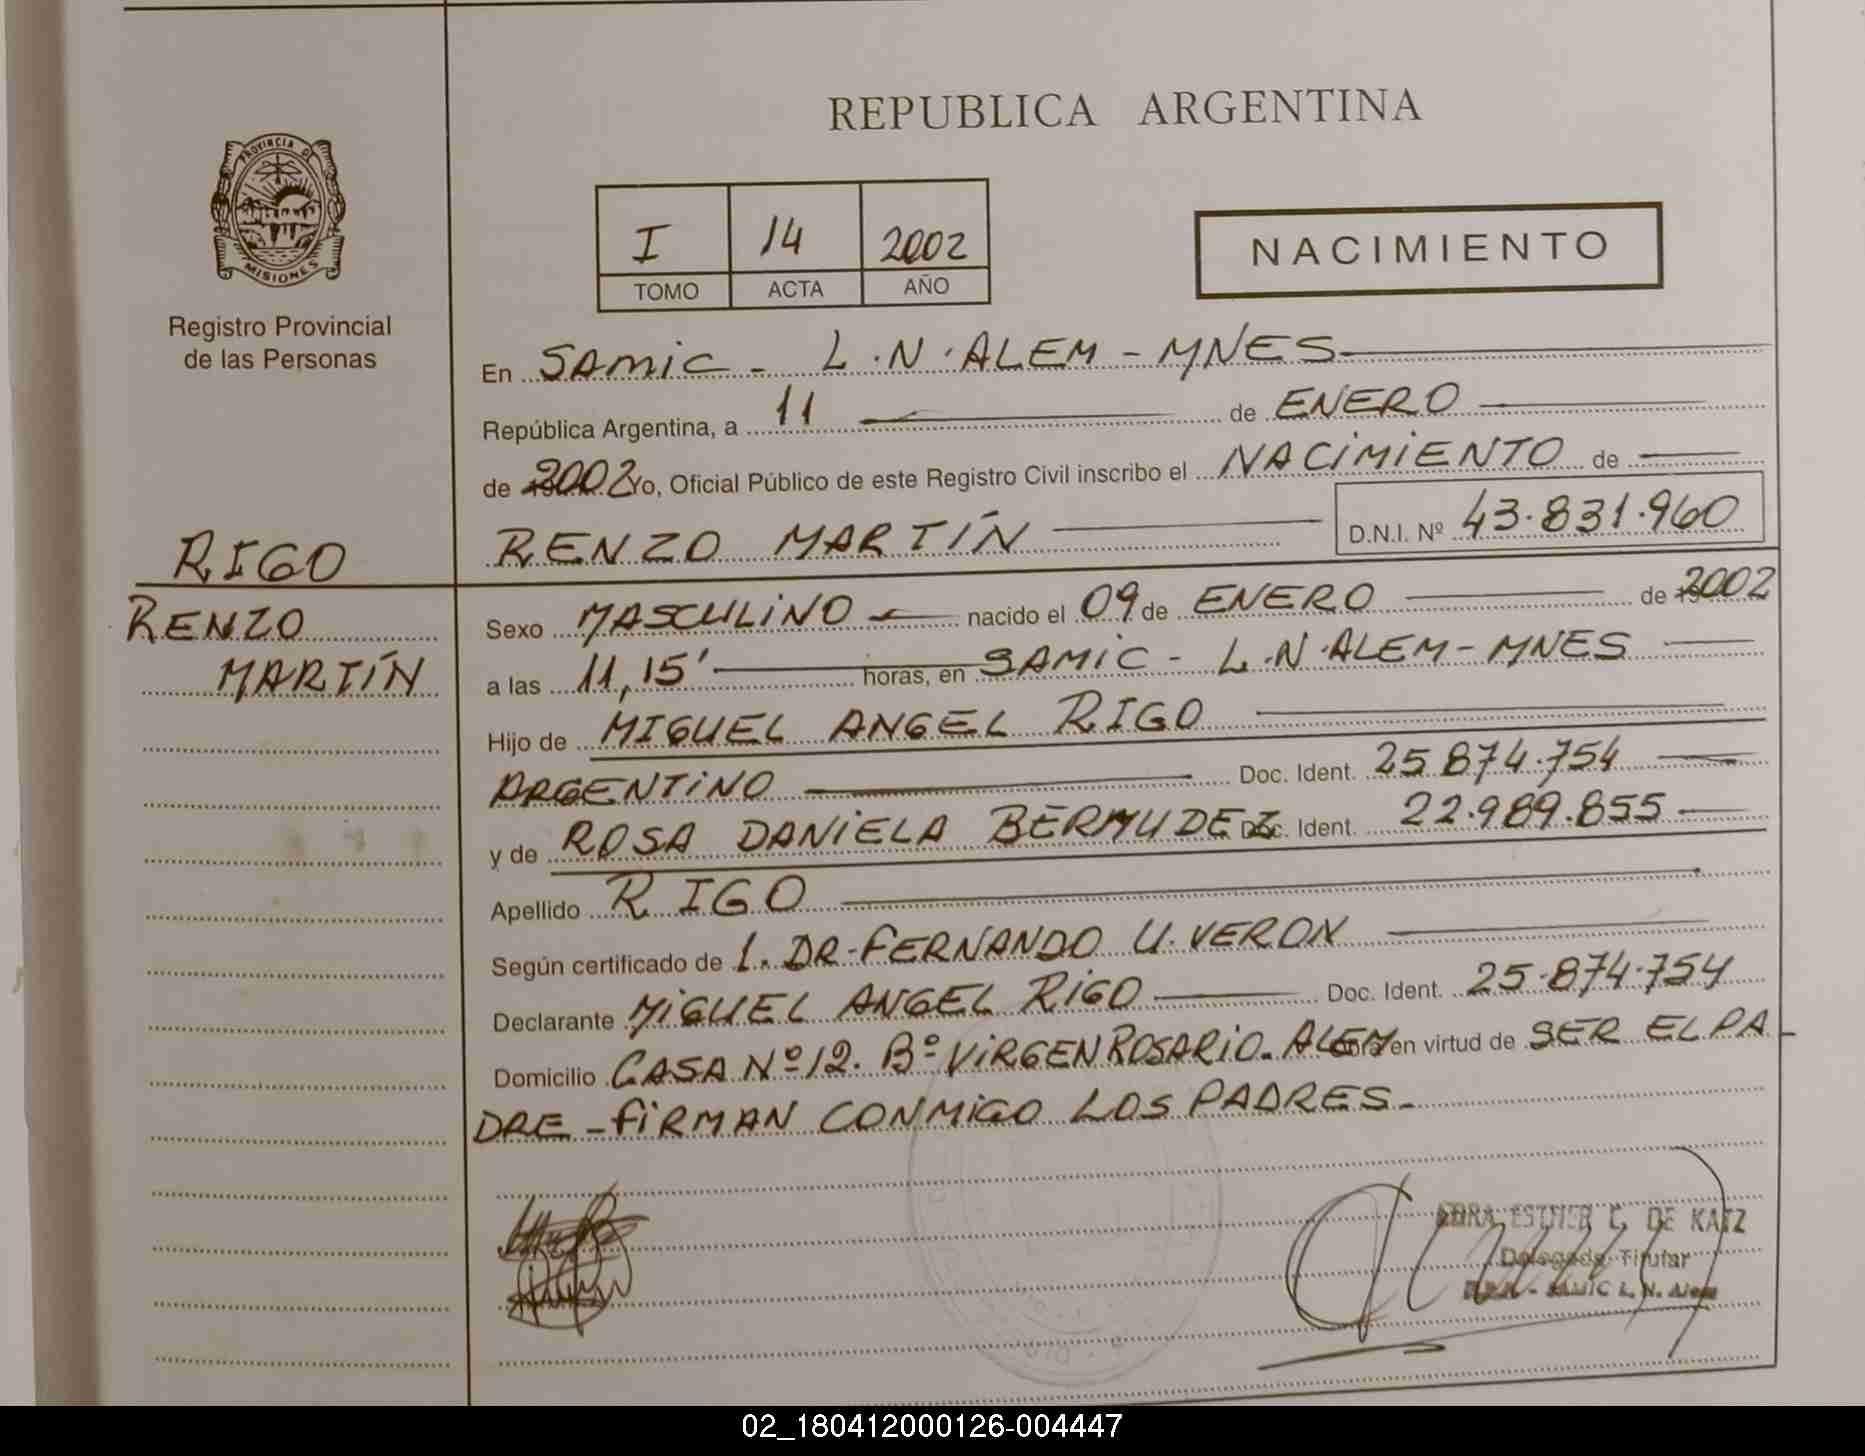 REPUBLICA ARGENTINA
PROVINCIA DE
MISIONES
Registro Provincial
de las Personas
I 14 2002
TOMO ACTA AÑO
NACIMIENTO
En SAMIC - L.N.ALEM - MNES
República Argentina, a 11 de ENERO
de 2002 Yo, Oficial Público de este Registro Civil inscribo el NACIMIENTO de
RENZO MARTÍN D.N.I. Nº 43.831.960
RIGO
RENZO
MARTÍN
Sexo MASCULINO nacido el 09 de ENERO de 2002
a las 11,15' horas, en SAMIC - L.N.ALEM - MNES
Hijo de MIGUEL ANGEL RIGO
ARGENTINO Doc. Ident. 25.874.754
y de ROSA DANIELA BERMUDEZ Doc. Ident. 22.989.855
Apellido RIGO
Según certificado de 1. DR-FERNANDO U. VERON
Declarante MIGUEL ANGEL RIGO Doc. Ident. 25.874.754
Domicilio CASA Nº 12. Bº VIRGEN ROSARIO. ALEM en virtud de SER EL PA-
DRE - FIRMAN CONMIGO LOS PADRES.
ESTHER C. DE KATZ
Delegada Titular
SAMIC L. N. Alem
02_180412000126-004447